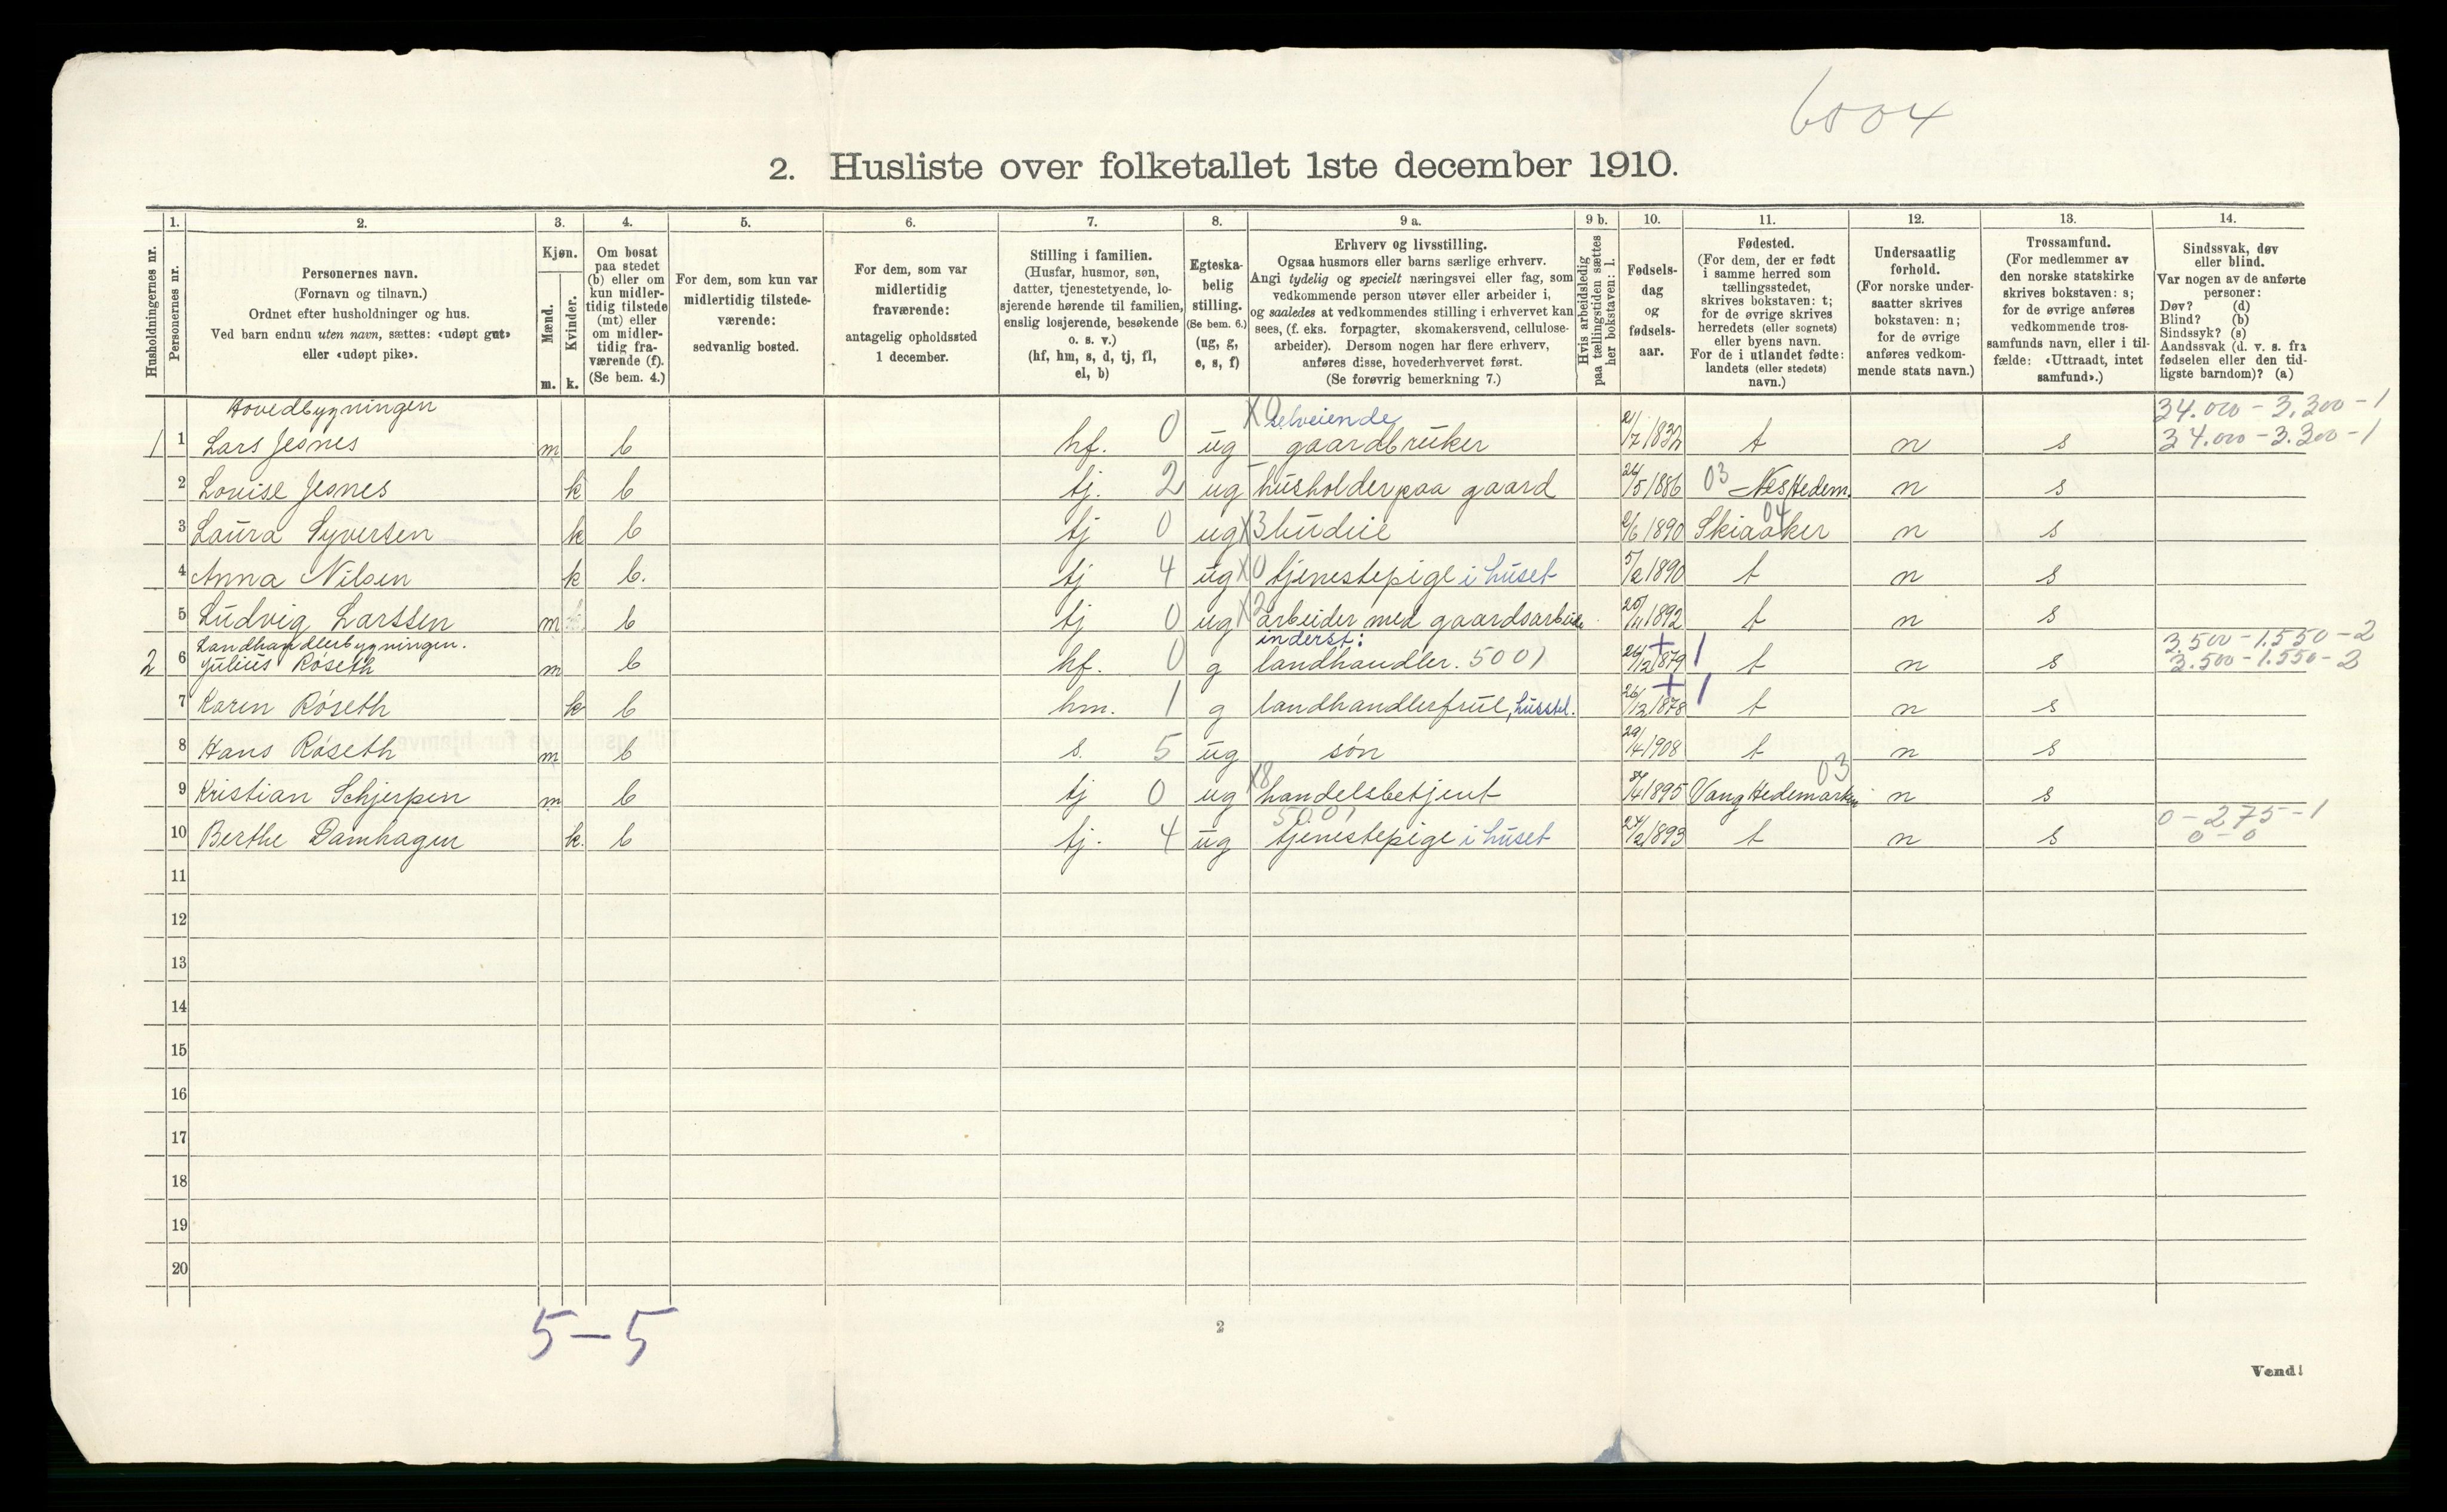 6004
2. Husliste over folketallet 1ste december 1910.
1. 2. 3. 4. 5. 6. 7. 8. 9 a. 9 b. 10. 11. 12. 13. 14.
Husholdningernes nr.
Personernes nr.
Personernes navn.
(Fornavn og tilnavn.)
Ordnet efter husholdninger og hus.
Ved barn endnu uten navn, sættes: «udøpt gut»
eller «udøpt pike».
Kjøn.
Mænd.
Kvinder.
m. k.
Om bosat
paa stedet
(b) eller om
kun midler-
tidig tilstede
(mt) eller
om midler-
tidig fra-
værende (f).
(Se bem. 4.)
For dem, som kun var
midlertidig tilstede-
værende:
sedvanlig bosted.
For dem, som var
midlertidig
fraværende:
antagelig opholdssted
1 december.
Stilling i familien.
(Husfar, husmor, søn,
datter, tjenestetyende, lo-
sjerende hørende til familien,
enslig losjerende, besøkende
o. s. v.)
(hf, hm, s, d, tj, fl,
el, b)
Egteska-
belig
stilling.
(Se bem. 6.)
(ug, g,
e, s, f)
Erhverv og livsstilling.
Ogsaa husmors eller barns særlige erhverv.
Angi tydelig og specielt næringsvei eller fag, som
vedkommende person utøver eller arbeider i,
og saaledes at vedkommendes stilling i erhvervet kan
sees, (f. eks. forpagter, skomakersvend, cellulose-
arbeider). Dersom nogen har flere erhverv,
anføres disse, hovederhvervet først.
(Se forøvrig bemerkning 7.)
Hvis arbeidsledig
paa tællingstiden sættes
her bokstaven: l.
Fødsels-
dag
og
fødsels-
aar.
Fødested.
(For dem, der er født
i samme herred som
tællingsstedet,
skrives bokstaven: t;
for de øvrige skrives
herredets (eller sognets)
eller byens navn.
For de i utlandet fødte:
landets (eller stedets)
navn.)
Undersaatlig
forhold.
(For norske under-
saatter skrives
bokstaven: n;
for de øvrige
anføres vedkom-
mende stats navn.)
Trossamfund.
(For medlemmer av
den norske statskirke
skrives bokstaven: s;
for de øvrige anføres
vedkommende tros-
samfunds navn, eller i til-
fælde: «Uttraadt, intet
samfund».)
Sindssvak, døv
eller blind.
Var nogen av de anførte
personer:
Døv? (d)
Blind? (b)
Sindssyk? (s)
Aandssvak (d. v. s. fra
fødselen eller den tid-
ligste barndom)? (a)
Hovedbygningen X 0 selveiende 34.000 - 3.300 - 1
1 1 Lars Jesnes m b hf. 0 ug gaardbruker /7 1832 t n s 34.000 - 3.300 - 1
2 Louise Jesnes k b tj. 2 ug husholder paa gaard 26/5 1886 03 Nes Hedem. n s
3 Laura Syversen k b tj 0 ug X3 budeie 2/6 1890 Skiaaker 04 n s
4 Anna Nilsen k b. tj 4 ug X0 tjenestepige i huset 5/2 1890 t n s
5 Ludvig Larssen m b tj 0 ug X2 arbeider med gaardsarbeide 20/11 1892 t n s
Landhandlerbygningen. inderst: 3.500 - 1.550 - 2
2 6 Julius Røseth m b hf. 0 g landhandler. 5001 26/12 1879 + 1 t n s 3.500 - 1.550 - 2
7 Karen Røseth k b hm. 1 g landhandlerfrue, husstel. 26/12 1878 + 1 t n s
8 Hans Røseth m b s. 5 ug søn 29/4 1908 t n s
9 Kristian Schjerpen m b tj 0 ug X8 handelsbetjent /4 1895 Vang Hedemarken 03 n s
5001 0 - 275 - 1
10 Berthe Damhagen k. b tj. 4 ug tjenestepige i huset 24/2 1893 t n s 0 - 0
11
12
13
14
15
16
17
18
19
20
5 - 5
2
Vend!